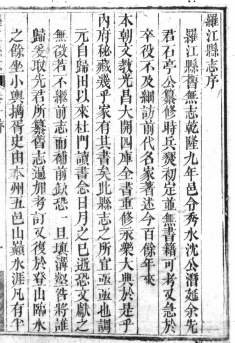 羅江縣志序
羅江縣舊無志乾隆九年邑分秀水沈公潛延余先
君石亭公纂修時兵燹初定並無書籍可考又急於
卒役不及細訪前代名家著述今百餘年來
本朝文教光昌大開四庫全書重修永樂大典於是乎
內府秘藏幾乎家有其書矣此縣志之所宜亟亟也調
元自歸田以來杜門讀書念日月之已逝恐文獻之
無徵若不繼前志而補前缺恐一旦填溝壑咎將誰
歸爰取先君所纂舊志逓加考訂又復於登山臨水
之餘坐小輿攜胥史由本州五邑山巔水涯凡有半